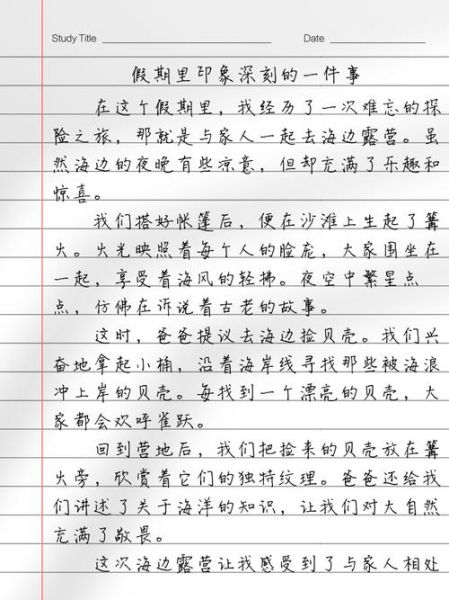 Study Title
Date
假期里印象深刻的一件事
在这个假期里，我经历了一次难忘的探
险之旅，那就是与家人一起去海边露营。虽
然海边的夜晚有些凉意，但却充满了乐趣和
惊喜。
我们搭好帐篷后，便在沙滩上生起了篝
火。火光映照着每个人的脸庞，大家围坐在
一起，享受着海风的轻拂。夜空中繁星点
点，仿佛在诉说着古老的故事。
这时，爸爸提议去海边捡贝壳。我们兴
奋地拿起小桶，沿着海岸线寻找那些被海浪
冲上岸的贝壳。每找到一个漂亮的贝壳，大
家都会欢呼雀跃。
回到营地后，我们把捡来的贝壳放在篝
火旁，欣赏着它们的独特纹理。爸爸还给我
们讲述了关于海洋的知识，让我们对大自然
充满了敬畏。
这次海边露营让我感受到了与家人相处